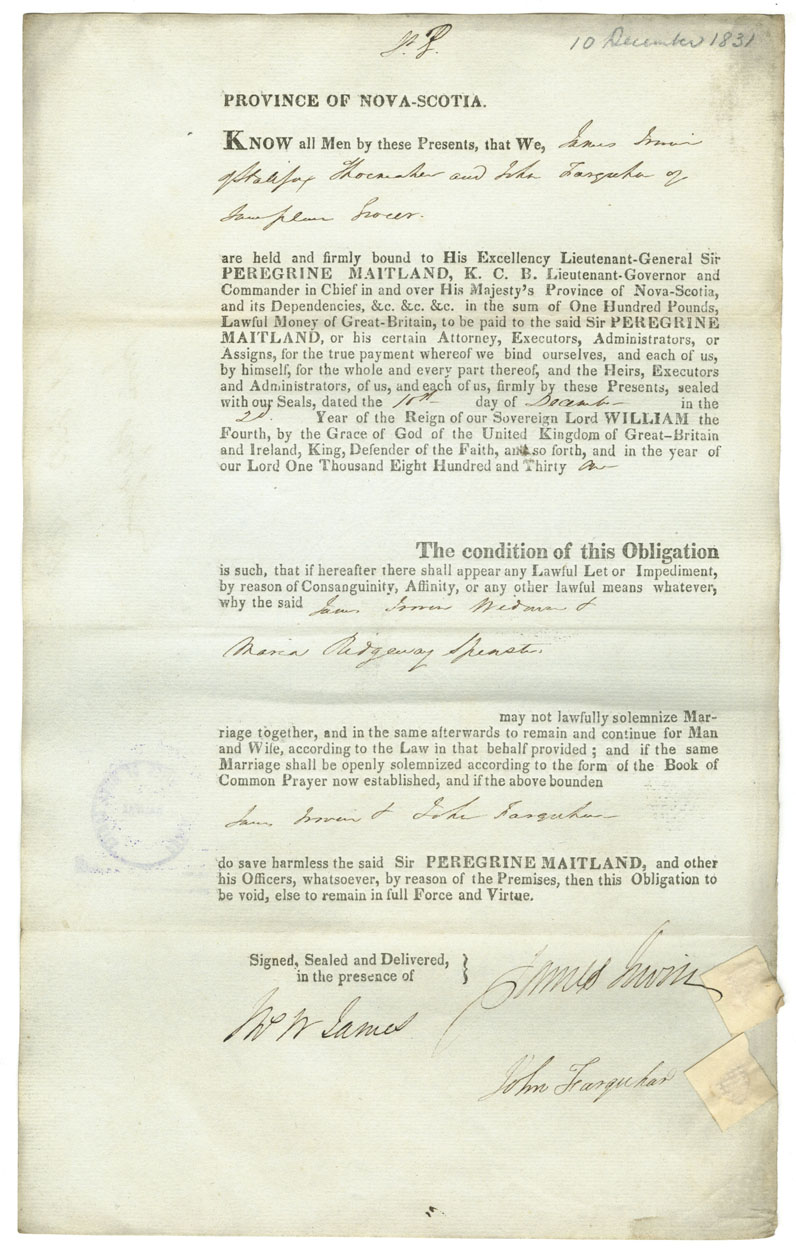 10 December 1831
PROVINCE OF NOVA-SCOTIA.
KNOW all Men by these Presents, that We, James Irwin
of Halifax Shoemaker and John Farquhar of
Same place Grocer.
are held and firmly bound to His Excellency Lieutenant-General Sir
PEREGRINE MAITLAND, K. C. B. Lieutenant-Governor and
Commander in Chief in and over His Majesty's Province of Nova-Scotia,
and its Dependencies, &c. &c. &c. in the sum of One Hundred Pounds,
Lawful Money of Great-Britain, to be paid to the said Sir PEREGRINE
MAITLAND, or his certain Attorney, Executors, Administrators, or
Assigns, for the true payment whereof we bind ourselves, and each of us,
by himself, for the whole and every part thereof, and the Heirs, Executors
and Administrators, of us, and each of us, firmly by these Presents, sealed
with our Seals, dated the 10th day of December in the
2d. Year of the Reign of our Sovereign Lord WILLIAM the
Fourth, by the Grace of God of the United Kingdom of Great-Britain
and Ireland, King, Defender of the Faith, and so forth, and in the year of
our Lord One Thousand Eight Hundred and Thirty one
The condition of this Obligation
is such, that if hereafter there shall appear any Lawful Let or Impediment,
by reason of Consanguinity, Affinity, or any other lawful means whatever,
why the said James Irwin Widower &
Maria Ridgeway Spinster.
may not lawfully solemnize Mar-
riage together, and in the same afterwards to remain and continue for Man
and Wife, according to the Law in that behalf provided; and if the same
Marriage shall be openly solemnized according to the form of the Book of
Common Prayer now established, and if the above bounden
James Irwin & John Farquhar
do save harmless the said Sir PEREGRINE MAITLAND, and other
his Officers, whatsoever, by reason of the Premises, then this Obligation to
be void, else to remain in full Force and Virtue.
Signed, Sealed and Delivered,
in the presence of
James Irwin
W James
John Farquhar